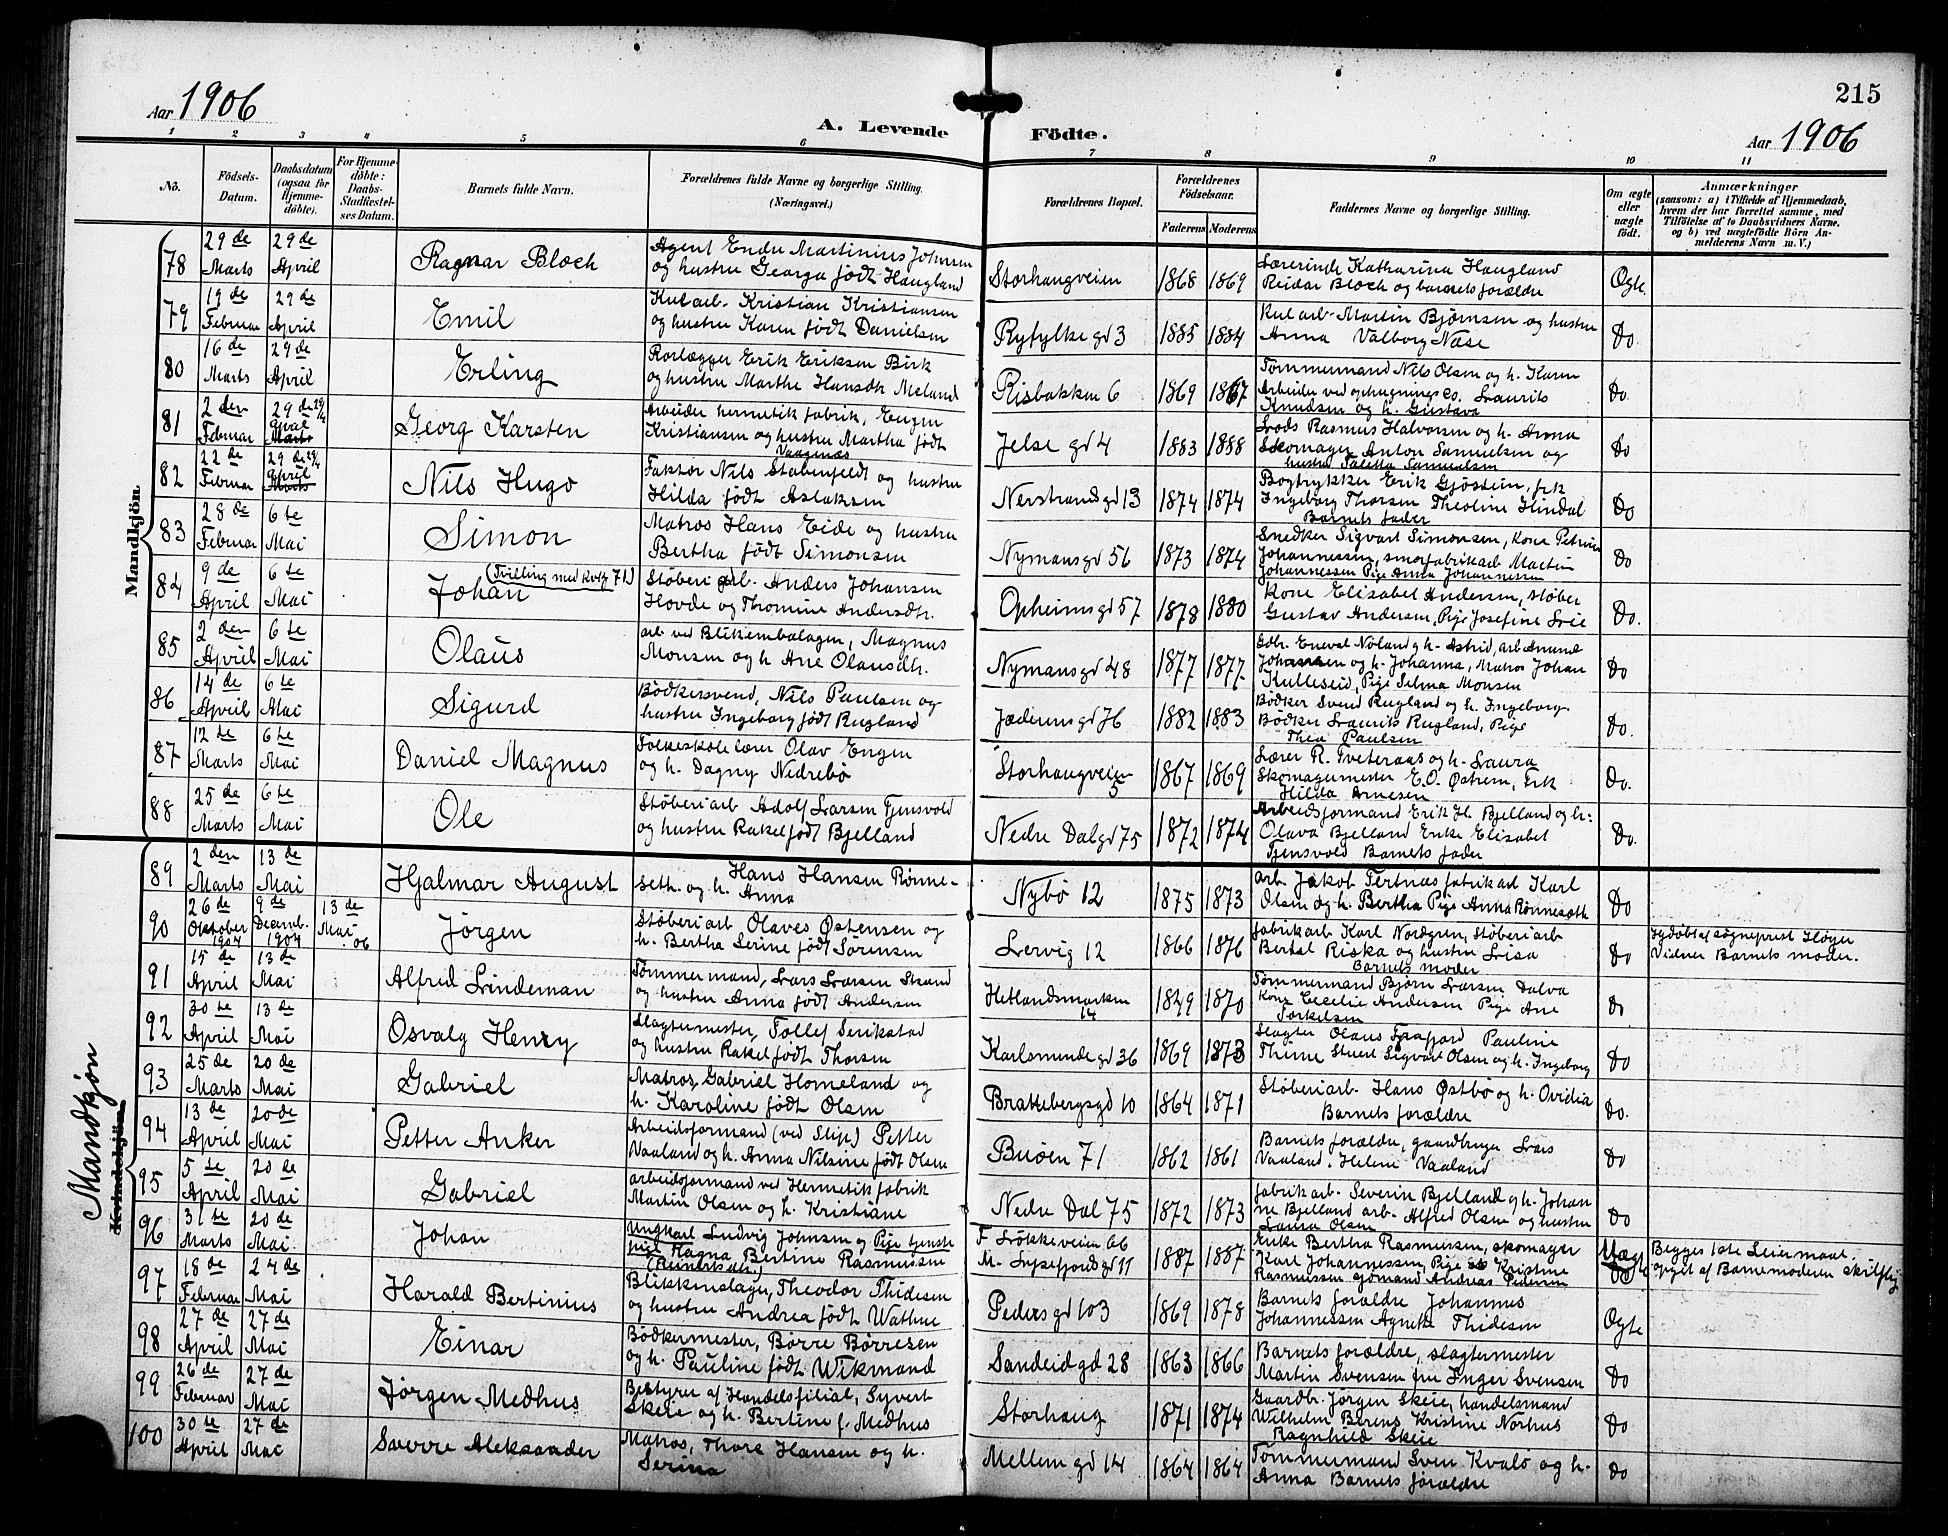 215
Aar 1906
A. Levende Födte.
Aar 1906
1 2 3 4 5 6 7 8 9 10 11
No.
Födsels-Datum.
Daabsdatum (ogsaa for Hjemme-döbte).
For Hjemme-döbte: Daabs-Stadfæstel-ses Datum.
Barnets fulde Navn.
Forældrenes fulde Navne og borgerlige Stilling. (Næringsvei.)
Forældrenes Bopæl.
Forældrenes Födselsaar.
Faderens Moderens
Faddernes Navne og borgerlige Stilling.
Om ægte eller uægte födt.
Anmærkninger
(saasom: a) i Tilfælde af Hjemmedaab, hvem der har forrettet samme, med Tilföielse af to Daabsvidners Navne, og b) ved uægtefödte Börn An-melderens Navn m. V.)
Mandkjön.
78 29de Marts 29de April Ragnar Bloch
Agent Endre Martinius Johnsen
og hustru Georga født Haugland
Storhaugveien 1868 1869
Lærerinde Katharina Haugland
Reidar Bloch og barnets forældre
Ægte.
79 19de Februar 29de April Emil
Kularb. Kristian Kristiansen
og hustru Karen født Danielsen
Ryfylkegd 3 1885 1884
Kularb. Martin Bjørnsen og hustru
Anna Valborg Næse
Do
80 16de Marts 29de April Erling
Rørlægger Erik Eriksen Birk
og hustru Marthe Hansdtr. Meland
Risbakken 6 1869 1867
Tømmermand Nils Olsen og h. Karen
Arbeider ved ophugnings Co. Laurits
Knudsen og h. Gustava
Do
81 2den Februar 29de April 29/4 Marts Georg Karsten
Arbeider hermetikfabrik, Eugen
Kristiansen og hustru Martha født
Vaagenæs
Jelsegd 4 1883 1888
Lods Rasmus Halvorsen og h. Anna
Skomager Anton Samuelsen og
hustru Taletta Samuelsen
Do
82 22de Februar 29de 29/4 April Marts Nils Hugo
Faktor Nils Stabenfeldt og hustru
Hilda født Aslaksen
Nerstrandsgd 13 1874 1874
Bogtrykker Erik Gjøstein, frk
Ingeborg Thorsen Theoline Hindal
Barnets fader
Do
83 28de Februar 6te Mai Simon
Matros Hans Eide og hustru
Bertha født Simonsen
Nymansgd 56 1873 1874
Snedker Sigvart Simonsen, Kone Petrine
Johannessen, smørfabrikarb Martin
Johannessen Pige Anna Johannessen
Do
84 9de April 6te Mai Johan (Tvilling med kvkj 71)
Støberiarb. Anders Johansen
Hovde og Thomine Andersdtr.
Opheimsgd 57 1878 1880
Kone Elisabet Andersen, støber
Gustav Andersen, Pige Josefine Lie
Do.
85 2den April 6te Mai Olaus
arb ved Blikembalagen, Magnus
Monsen og h. Ane Olausdtr.
Nymansgd 48 1877 1877.
Gdbr. Enevat Noland og h. Astrid, arb Amund
Johannesen og h. Johanna, Matros Johan
Kulleseid, Pige Selma Monsen
Do
86 14de April 6te Mai Sigurd
Bødkersvend, Nils Paulsen og
hustru Ingeborg født Rugland
Jæderensgd 76 1882 1883
Bødker Svend Rugland og h. Ingeborg.
Bødker Laurits Rugland, Pige
Thea Paulsen
Do.
87 12de Marts 6te Mai Daniel Magnus
Folkeskolelærer Olav Engen
og h. Dagny Nedrebø
Storhaugveien 5 1867 1869
Lærer R. Tveteraas og h. Laura
Skomagermester E. O. Østrem, Frk
Hilda Arnesen
Do.
88 25de Marts 6te Mai Ole
Støberiarb Adolf Larsen Tjensvold
og hustru Rakel født Bjelland
Nedre Dalgd 75 1872 1874
Arbeidsformand Erik H. Bjelland og h:
Olava Bjelland Enke Elisabet
Tjensvold Barnets fader
Do.
Mandkjøn
Kvindekjön.
89 2den Marts 13de Mai Hjalmar August
Hans Hansen Rønne-
seth. og h. Anna
Nybø 12 1875 1873
arb. Jakob Tertnæs fabrikarb Karl
Olsen og h. Bertha Pige Anna Rønneseth
Do
90 26de Oktober 1904 9de Decemb. 1904 13de Mai 06 Jörgen
Støberiarb Olaves Østensen og
h. Bertha Serine født Sørensen
Lervig 12 1866 1876
fabrikarb. Karl Nordgren, støberiarb
Bertel Riska og hustru Lisa
Barnets moder
Do
Hjdøbt af sogneprest Høyer
Vidner Barnets moder.
91 15de April 13de Mai Alfred Lindeman
Tømmermand, Lars Larsen Strand
og hustru Anna født Andersen
Hetlandsmarken 14 1849 1870
Tømmermand Bjørn Larsen Dalva
Kone Cecilie Andersen Pige Ane
Torkelsen
Do
92 30te April 13de Mai Osvalg Henry
Slagtermester, Tollef Serikstad
og hustru Rakel født Thorsen
Karlsmindegd 36 1869 1873
Slagter Olaus Frafjord Pauline
Thime Stuert Sigvart Olsen og h. Ingeborg
Do
93 25de Marts 20de Mai Gabriel
Matros, Gabriel Homeland og
h. Karoline født Olsen
Brattebergsgd 10 1864 1871
Støberiarb. Hans Østbø og h. Ovidia
Barnets forældre
Do.
94 13de April 20de Mai Petter Anker
Arbeidsformand (ved Slip) Petter
Vaaland og h. Anna Nilsine født Olsen
Buøen 71 1862 1861
Barnets forældre, gaardbruger Lars
Vaaland. Helene Vaaland
Do
95 5te April 20de Mai Gabriel
arbeidsformand ved Hermetikfabrik
Martin Olsen og h. Kristiane
Nedre Dal 75 1872 1873
fabrikarb. Severin Bjelland og h. Johan
ne Bjelland arb. Alfred Olsen og hustru
Laura Olsen
Do
96 31te Marts 20de Mai Johan
Ungkarl Ludvig Johnsen og Pige tjeneste
pige Ragna Bertine Rasmussen
F. Løkkeveien 66
M. Lysefjordgd 11 1887 1887
Enke Bertha Rasmussen, skomager
Karl Johannessen, Pige Kristine
Rasmussen sjømand Andreas Pedersen
Uægte
Do
Begges 1ste Leiermaal.
opget af Barnemoderen skriftlig
97 18de Februar 24de Mai Harald Bertinius
Blikkenslager, Theodor Thidesen
og hustru Andrea født Wathne
Pedersgd 103 1869 1878
Barnets forældre Johannes
Johannessen Agnete Thidesen
Ægte
98 27de April 27de Mai Einar
Bødkermester, Børre Børresen
og h. Pauline født Wikmand
Sandeidgd 28 1863 1866
Barnets forældre, slagtermester
Martin Svensen fru Inger Svensen
Do
99 26de Februar 27de Mai Jørgen Medhus
Bestyrer af Handelsfilial, Syvert
Skeie og h. Bertine f. Medhus
Storhaug 1871 1874
Gaardbr. Jørgen Skeie, handelsmand
Wilhelm Berens Kristine Norhus
Ragnhild Skeie
Do
100 30te April 27de Mai Sverre Aleksander
Matros, Thore Hansen og h.
Serina
Mellemgd 14 1864 1864
Tømmermand Sven Kvalø og h.
Anna Barnets forældre
Do